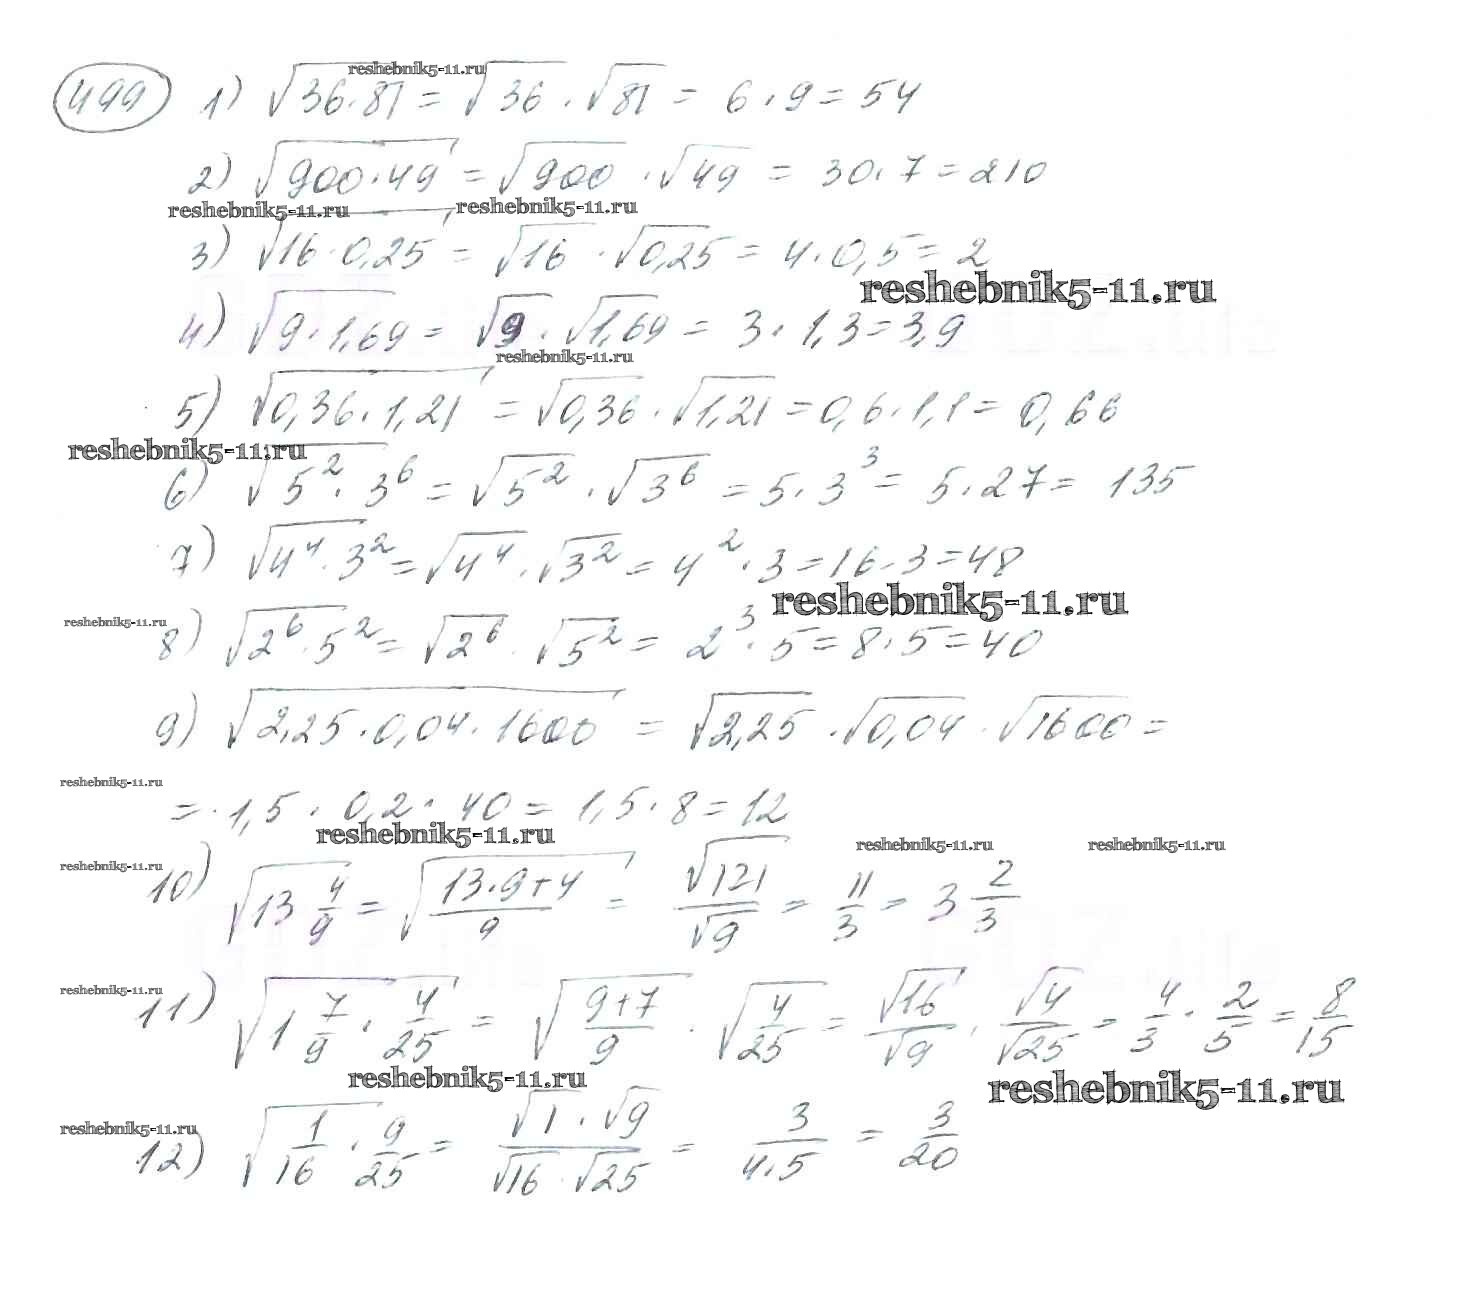 499 1) √(36·81) = √36 · √81 = 6·9 = 54
reshebnik5-11.ru
2) √(900·49) = √900 · √49 = 30·7 = 210
reshebnik5-11.ru reshebnik5-11.ru
3) √(16·0,25) = √16 · √0,25 = 4·0,5 = 2
reshebnik5-11.ru
4) √(9·1,69) = √9 · √1,69 = 3·1,3 = 3,9
reshebnik5-11.ru
5) √(0,36·1,21) = √0,36 · √1,21 = 0,6·1,1 = 0,66
reshebnik5-11.ru
6) √(5²·3⁶) = √5² · √3⁶ = 5·3³ = 5·27 = 135
7) √(4⁴·3²) = √4⁴ · √3² = 4²·3 = 16·3 = 48
reshebnik5-11.ru
reshebnik5-11.ru
8) √(2⁶·5²) = √2⁶ · √5² = 2³·5 = 8·5 = 40
9) √(2,25·0,04·1600) = √2,25 · √0,04 · √1600 =
reshebnik5-11.ru
= 1,5·0,2·40 = 1,5·8 = 12
reshebnik5-11.ru reshebnik5-11.ru reshebnik5-11.ru
reshebnik5-11.ru
10) √(13 4/9) = √((13·9+4)/9) = √121/√9 = 11/3 = 3 2/3
GDZ.life GDZ.life
reshebnik5-11.ru
11) √(1 7/9 · 4/25) = √((9+7)/9) · √(4/25) = √16/√9 · √4/√25 = 4/3 · 2/5 = 8/15
reshebnik5-11.ru reshebnik5-11.ru
reshebnik5-11.ru
12) √(1/16 · 9/25) = (√1 · √9)/(√16 · √25) = 3/(4·5) = 3/20